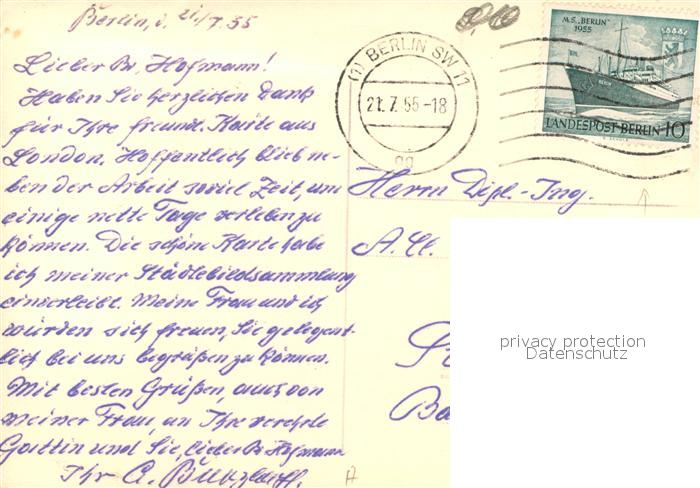 Berlin, d. 21./7.55
Lieber Br. Hofmann!
Haben Sie herzlichen Dank
für Ihre freundl. Karte aus
London. Hoffentlich blieb ne-
ben der Arbeit soviel Zeit, um
einige nette Tage verleben zu
können. Die schöne Karte habe
ich meiner Städtebildsammlung
einverleibt. Meine Frau und ich
würden sich freuen, Sie gelegent-
lich bei uns begrüßen zu können.
Mit besten Grüßen, auch von
meiner Frau, an Ihre verehrte
Gattin und Sie, lieber Br. Hofmann
Ihr
(1) BERLIN SW 11
21. 7. 55-18
gg
M.S. „BERLIN"
1955
LANDESPOST BERLIN 10
Herrn Dipl.-Ing.
privacy protection
Datenschutz